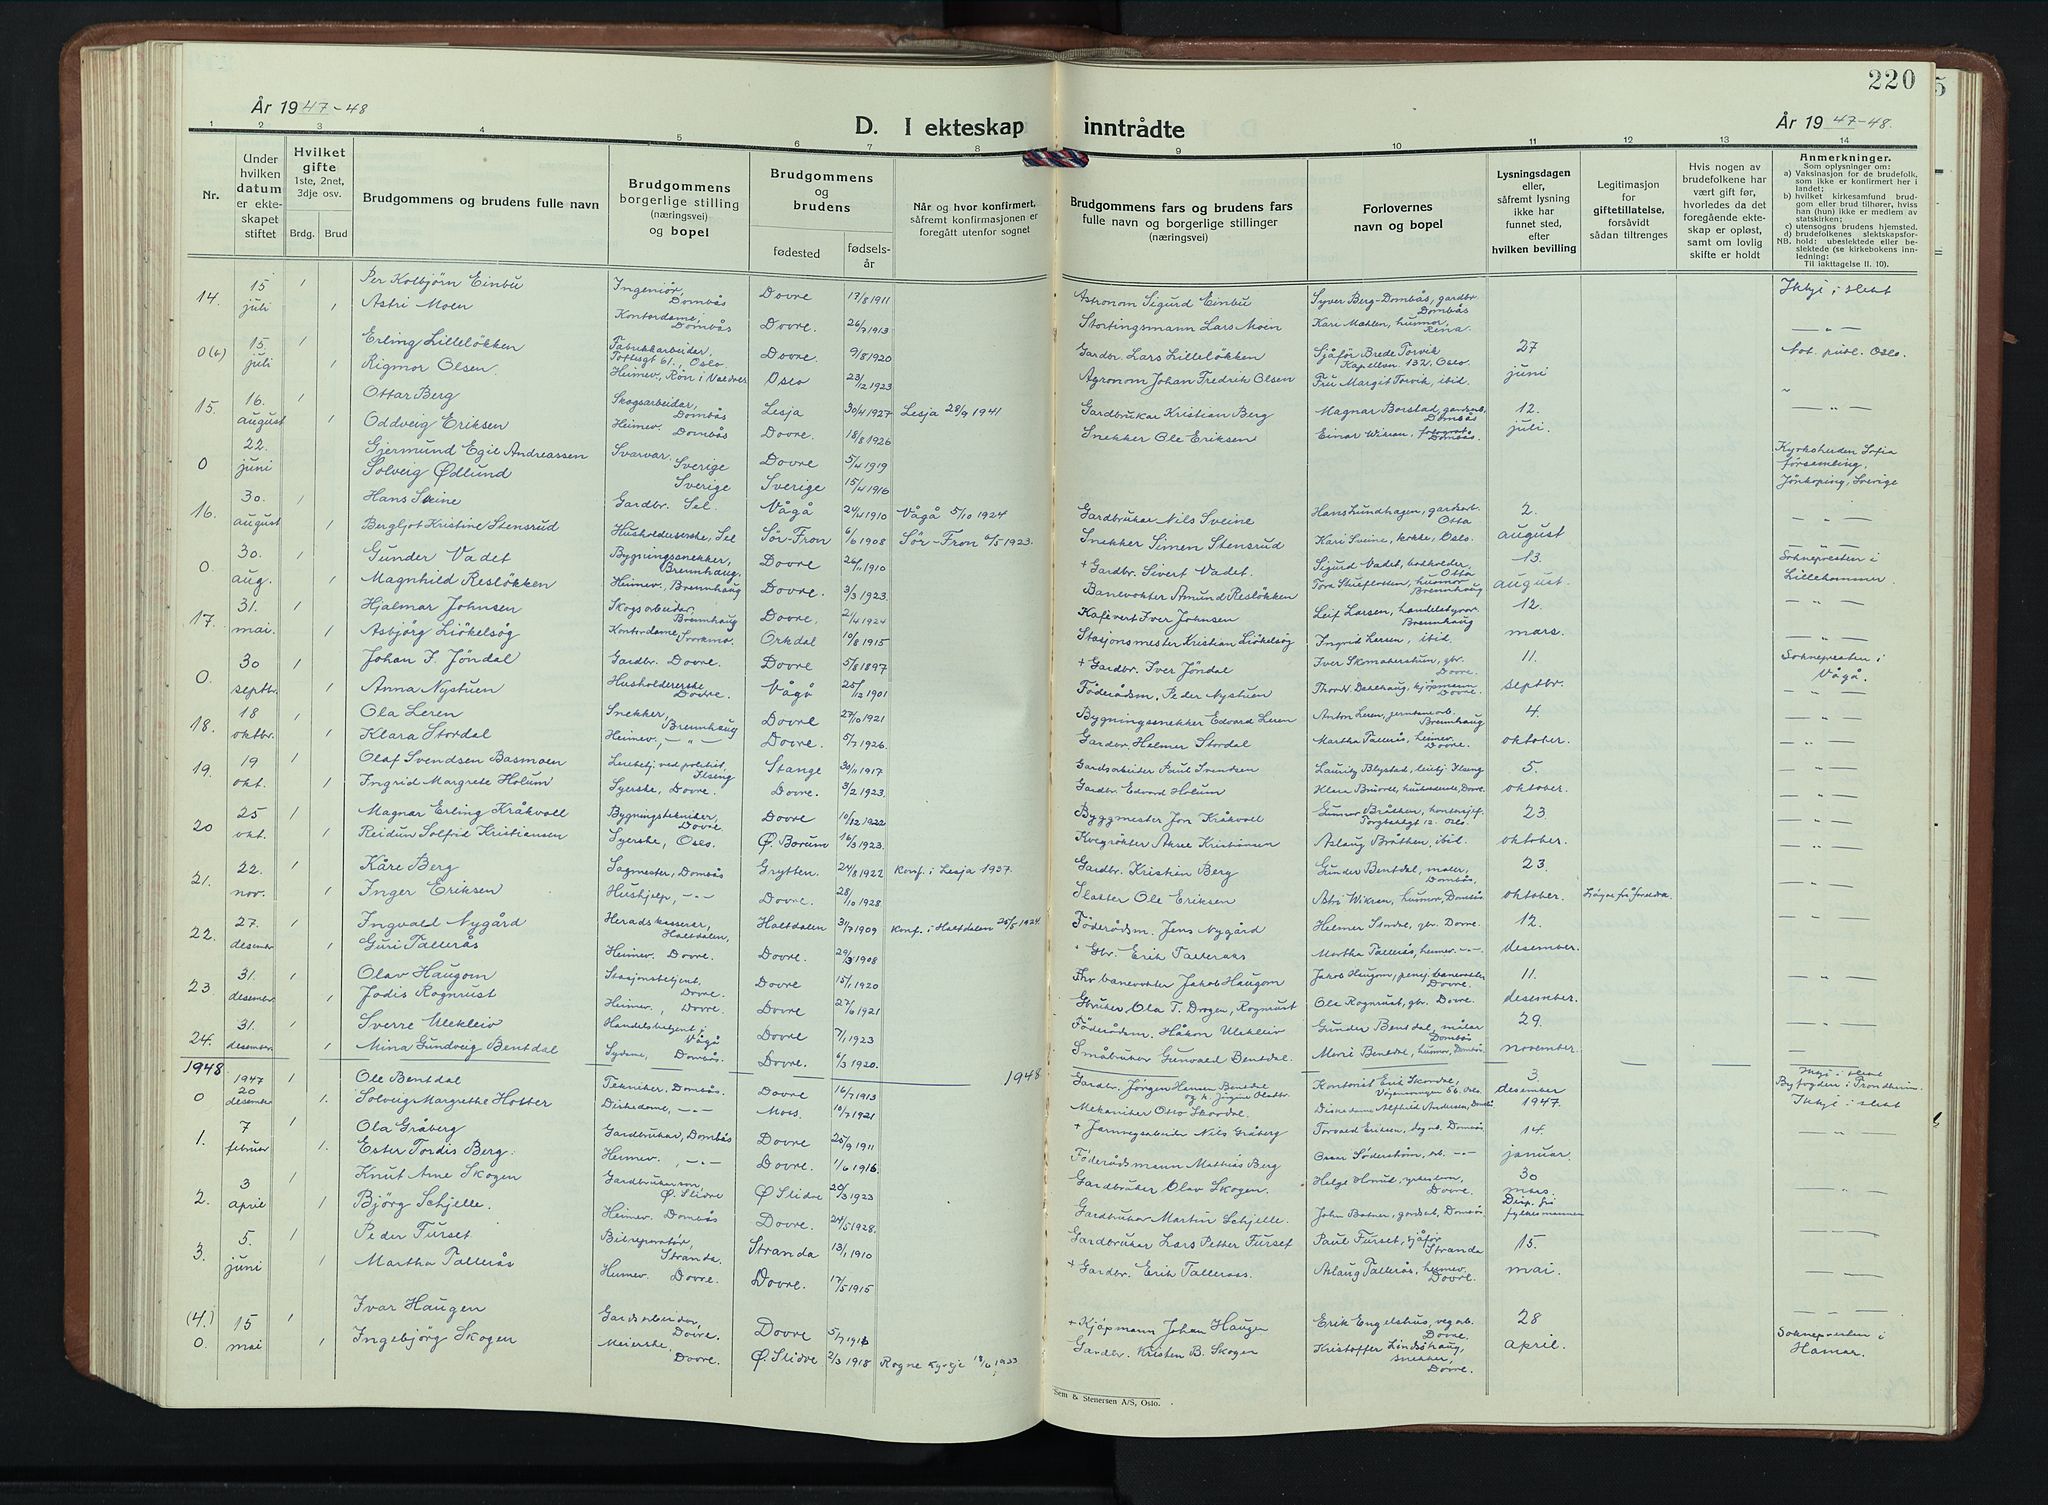 220
År 1947-48
D. I ekteskap inntrådte
År 1947-48.
1 2 3 4 5 6 7 8 9 10 11 12 13 14
Nr.
Under hvilken datum er ekteskapet stiftet
Hvilket gifte 1ste, 2net, 3dje osv.
Brdg. Brud
Brudgommens og brudens fulle navn
Brudgommens borgerlige stilling (næringsvei) og bopel
Brudgommens og brudens
fødested
fødselsår
Når og hvor konfirmert, såfremt konfirmasjonen er foregått utenfor sognet
Brudgommens fars og brudens fars fulle navn og borgerlige stillinger (næringsvei)
Forlovernes navn og bopel
Lysningsdagen eller, såfremt lysning ikke har funnet sted, efter hvilken bevilling
Legitimasjon for giftetillatelse, forsåvidt sådan tiltrenges
Hvis nogen av brudefolkene har vært gift før, hvorledes da det foregående ekteskap er opløst, samt om lovlig skifte er holdt
Anmerkninger.
Som oplysninger om:
a) Vaksinasjon for de brudefolk, som ikke er konfirmert her i landet;
b) hvilket kirkesamfund brudgom eller brud tilhører, hviss han (hun) ikke er medlem av statskirken;
c) utensogns brudens hjemsted.
d) brudefolkenes slektskapsforhold: ubeslektede eller beslektede (se kirkebokens innledning:
NB. Til iakttagelse II. 10).
14. 15 juli 1 Per Kolbjørn Einbu Ingeniør, Dombås Dovre 17/8 1911 Astronom Sigurd Einbu Syver Berg-Dombås, gardbr. Dombås Ikkje i slekt
1 Astri Moen Kontordame, Dombås Dovre. 26/7 1913 Stortingsmann Lars Moen Kari Mæhlen, husmor, Rena. — " —
0(6) 15. juli 1 Erling Lilleløkken Fabrikkarbeider, Toftesgt 61, Oslo Dovre 9/8 1920 Gardbr. Lars Lilleløkken Sjåfør Brede Torvik Kapellvn. 132, Oslo. 27 juni Not. publ. Oslo.
1 Rigmor Olsen. Heimev. Røn i Valdres Oslo 23/12 1923 Agronom Johan Fredrik Olsen Fru Margit Torvik, ibid. "
15. 16. august 1 Ottar Berg Skogsarbeidar, Dombås Lesja 30/4 1927 Lesja 28/9 1941 Gardbrukar Kristian Berg Magnar Borstad, gardsarb. Dombås 12. juli. — " —
1 Oddveig Eriksen Heimev. Dombås Dovre. 18/8 1926 Snekker Ole Eriksen Einar Wikran, fotograf Dombås.
0 22. juni Gjermund Egil Andreassen Svarvar. Sverige Dovre 5/4 1919 Kyrkoherden Sofia församling.
Solveig Ødlund Sverige Sverige 15/4 1916 Jönköping, Sverige
16. 30. august 1 Hans Sveine Gardbr. Sel. Vågå 24/4 1910 Vågå 5/10 1924 Gardbrukar Nils Sveine Hans Lundhagen, gardsarb. Otta 2. august — " —
1 Bergljot Kristine Stensrud Husholderske, Sel Sør-Fron 6/6 1908 Sør-Fron 6/5 1923. Snekker Simen Stensrud Kari Sveine, kokke, Oslo. — " —
0. 30. aug. 1 Gunder Vadet Bygningssnekker, Brennhaug. Dovre 26/11 1910 + Gardbr. Sivert Vadet. Sigurd Vadet, bokholder, Otta 13. august. Soknepresten i Lillehammer.
1 Magnhild Resløkken Heimev. Brennhaug Dovre. 3/3 1923. Banevokter Amund Resløkken husmor Brennhaug
17. 31. mai. 1 Hjalmar Johnsen Skogsarbeidar, Brennhaug Dovre. 21/4 1924 Kafévert Iver Johnsen Leif Larsen, Brennhaug 12. mars. — " —
1 Asbjørg Liøkelsøy Kontordame, Orkdal 10/8 1915 Stasjonsmester Kristian Liøkelsøy Ingrid Larsen, ibid. — " —
0. 30 septbr. 1 Johan I. Jøndal Gardbr. Dovre. Dovre 5/8 1897 + Gardbr. Iver Jøndal Iver Skomakerstun, gbr. Dovre 11. septbr. Soknepresten i Vågå.
1 Anna Nystuen Husholderske Dovre. Vågå 25/12 1901 Føderådsm. Peder Nystuen kjøpmann Dovre. — " —
18. 18 oktbr. 1 Ola Leren Snekker, Brennhaug Dovre 27/10 1921 Bygningssnekker Edvard Leren Anton Leren, Brennhaug 4. oktober. — " —
1 Klara Stordal Heimev., — " — Dovre. 5/7 1926. Gardbr. Helmer Stordal Martha Tallerås, heimev. Dovre. — " —
19. 19 okt. 1 Olaf Svendsen Basmoen Ilseng Stange 30/11 1917 Gardsarbeider Paul Svendsen Lauritz Blystad, Ilseng 5. oktober. — " —
1 Ingrid Margrete Holum Syerske, Dovre. Dovre. 3/2 1923. Gardbr. Edvard Holum Dovre. — " —
20 25 okt. 1 Magnar Erling Kråkvoll Bygningstekniker, Dovre Dovre 10/12 1922 Byggmester Jon Kråkvoll Gunnar Bråthen, Oslo. 23. oktober. — " —
1 Reidun Solfrid Kristiansen Syerske, Oslo. Ø. Borum 16/3 1923. Kristiansen Aslaug Bråthen, ibid. — " —
21. 22. nov. 1 Kåre Berg Sagmester, Dombås Grytten. 24/8 1922 Konf. i Lesja 1937. Gardbr. Kristian Berg Gunder Bentdal, maler, Dombås 23. oktober. — " —
1 Inger Eriksen Hushjelp, — " — Dovre. 28/10 1928 Ole Eriksen Astri Wikran, husmor, Dombås — " —
22. 27. desember 1 Ingvald Nygård Heradskasserar, Haltdalen, Haltdalen 31/7 1909 Konf. i Haltdalen 25/5 1924 Føderådsm. Jens Nygård Helmer gbr. Dovre. 12. desember. — " —
1 Guri Tallerås Heimev. Dovre. Dovre. 29/3 1908 + Gbr. Erik Tolleraas Martha Tallerås, heimev. — " — — " —
23. 31. desember. 1 Olav Haugom Stasjonsbetjent, Dovre. Dovre 15/1 1920 Fhv. banevokter Jakob Haugom Jakob Haugom, pensj. banevokter Dovre. 11. desember. — " —
1 Jodis Rognrust Heimev., Dovre. Dovre 27/6 1921 Gbruker Ola T. Drogen, Rognrust Ole Rognrust, gbr. Dovre.
24. 31. desember 1 Sverre Ulekleiv Handelsbetjent i Vågå Dovre 7/1 1923 Føderådsm. Håkon Ulekleiv Gunder Bentdal, målar Dombås 29. november. — " —
1 Mina Gundveig Bentdal Sydame, Dombås. Dovre. 6/3 1920. Småbruker Gunvald Bentdal. Marie Bentdal, husmor, Dombås. —
1948 1948
0 1947 20 desember 1 Ole Bentdal Tekniker, Dombås. Dovre 16/7 1913 Gardbr. Jørgen Hansen Bentdal Kontorist Erik Skordal, Oslo 3. desember 1947. Ikkje i slekt Byfogden i Trondheim.
1. Solveig Margrethe Hotter Diskedame, — " — Moss. 10/7 1921 Mekaniker Otto Skordal. Diskedame Alfhild Andersen, Dombås Ikkje i slekt
1. 7 februar 1 Ola Gråberg Gardbrukar, Dombås Dovre 25/9 1911 + Jarnvegsarbeider Nils Gråberg Torvald Eriksen, Dombås 14. januar. — " —
1. Ester Tordis Berg. Heimev., — " — Dovre. 1/6 1916. Føderådsmann Mathias Berg Oscar Söderström, arb. — " —
2. 3 april 1 Knut Arne Skogen Gardbrukarson, Ø. Slidre Ø Slidre 20/3 1923 Gardbruker Olav Skogen. Helge Dovre. 30 mars — " —
1 Bjørg Schjelle. Heimev. Dombås Dovre. 24/5 1928. Gardbrukar Martin Schjelle. John Botner, gardsat, Dombås Disp. frå fylkesmannen
3. 5. juni 1 Peder Furset Bilreparatør, Stranda. Stranda 13/1 1910 Gardbrukar Lars Petter Furset Paul Furset, sjåfør Stranda 15. mai. — " —
1 Martha Tallerås Heimev. Dovre. Dovre. 17/5 1915 + Gardbr. Erik Talleraas. Aslaug Tallerås, heimev. Dovre. — " —
(4.) 0. 15 mai 1 Ivar Haugen Gardsarbeidar, Dovre. Dovre 5/7 1916 + Kjøpmann Johan Haugen Erik Engelshus, vegarb. Dovre. 28 april. — " —
1 Ingebjørg Skogen Meierske, Dovre. Ø. Slidre 2/3 1918 Rogne Kyrkje 18/6 1933 Gardbr. Kristen B. Skogen Kristoffer Lindshaug, snekker, Dovre. Soknepresten i Hamar.
Sem & Stenersen A/S, Oslo.